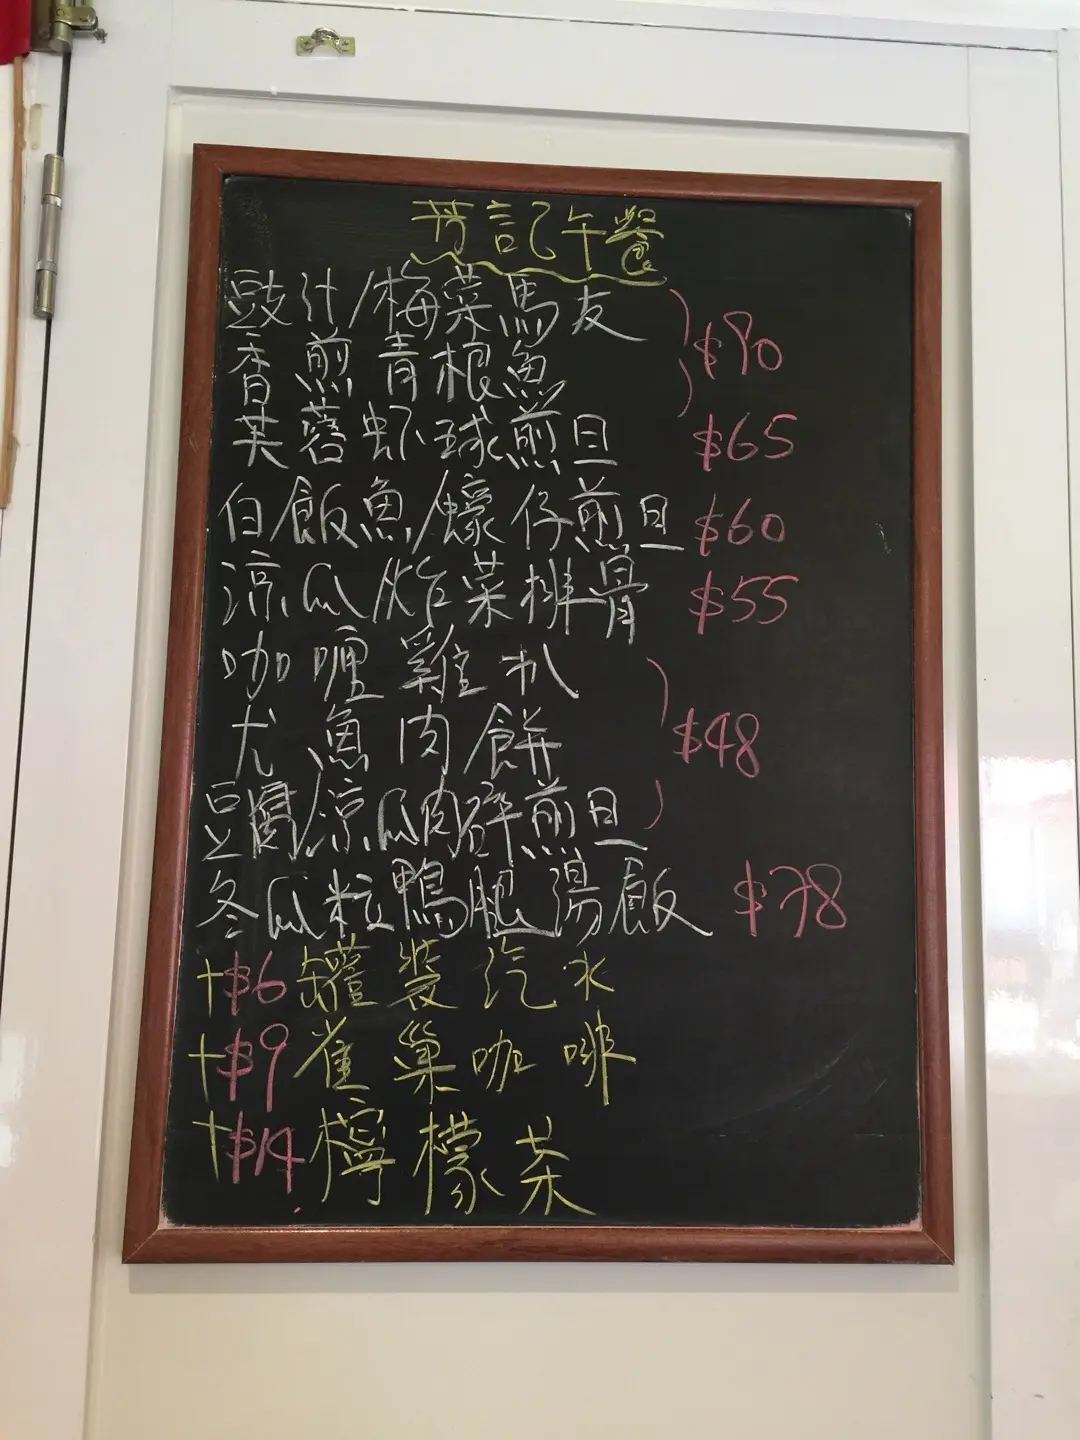 芳記午餐
豉汁/梅菜馬友
香煎青根魚 $90
芙蓉虾球煎旦 $65
白飯魚/蠔仔煎旦 $60
涼瓜/炸菜排骨 $55
咖喱雞扒
尤魚肉餅 $48
豆腐/涼瓜肉碎煎旦
冬瓜粒鴨腿湯飯 $78
+$6 罐裝汽水
+$9 雀巢咖啡
+$14 檸檬茶